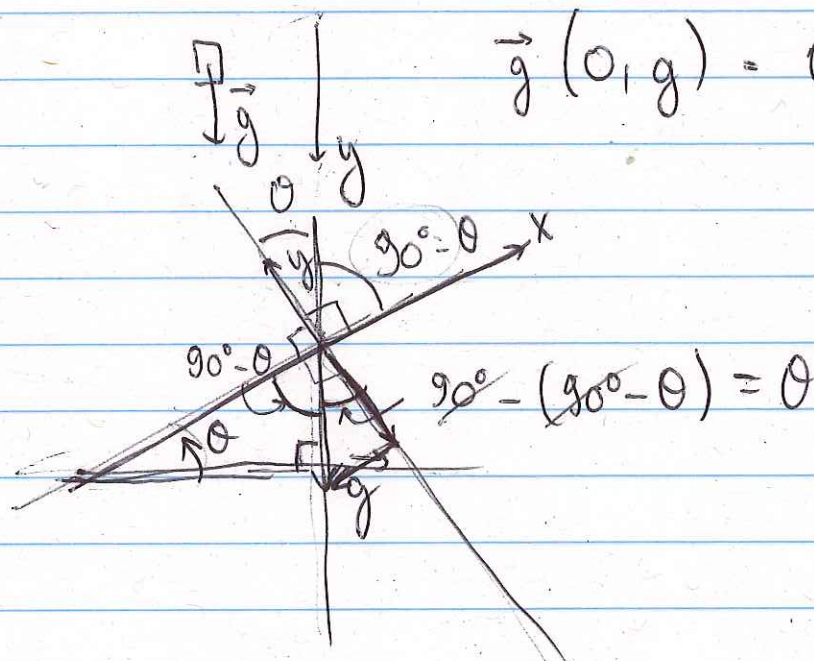 g⃗ (0, g) =
g⃗
y
θ
y
90° - θ
x
90° - θ
90° - (90° - θ) = θ
θ
g